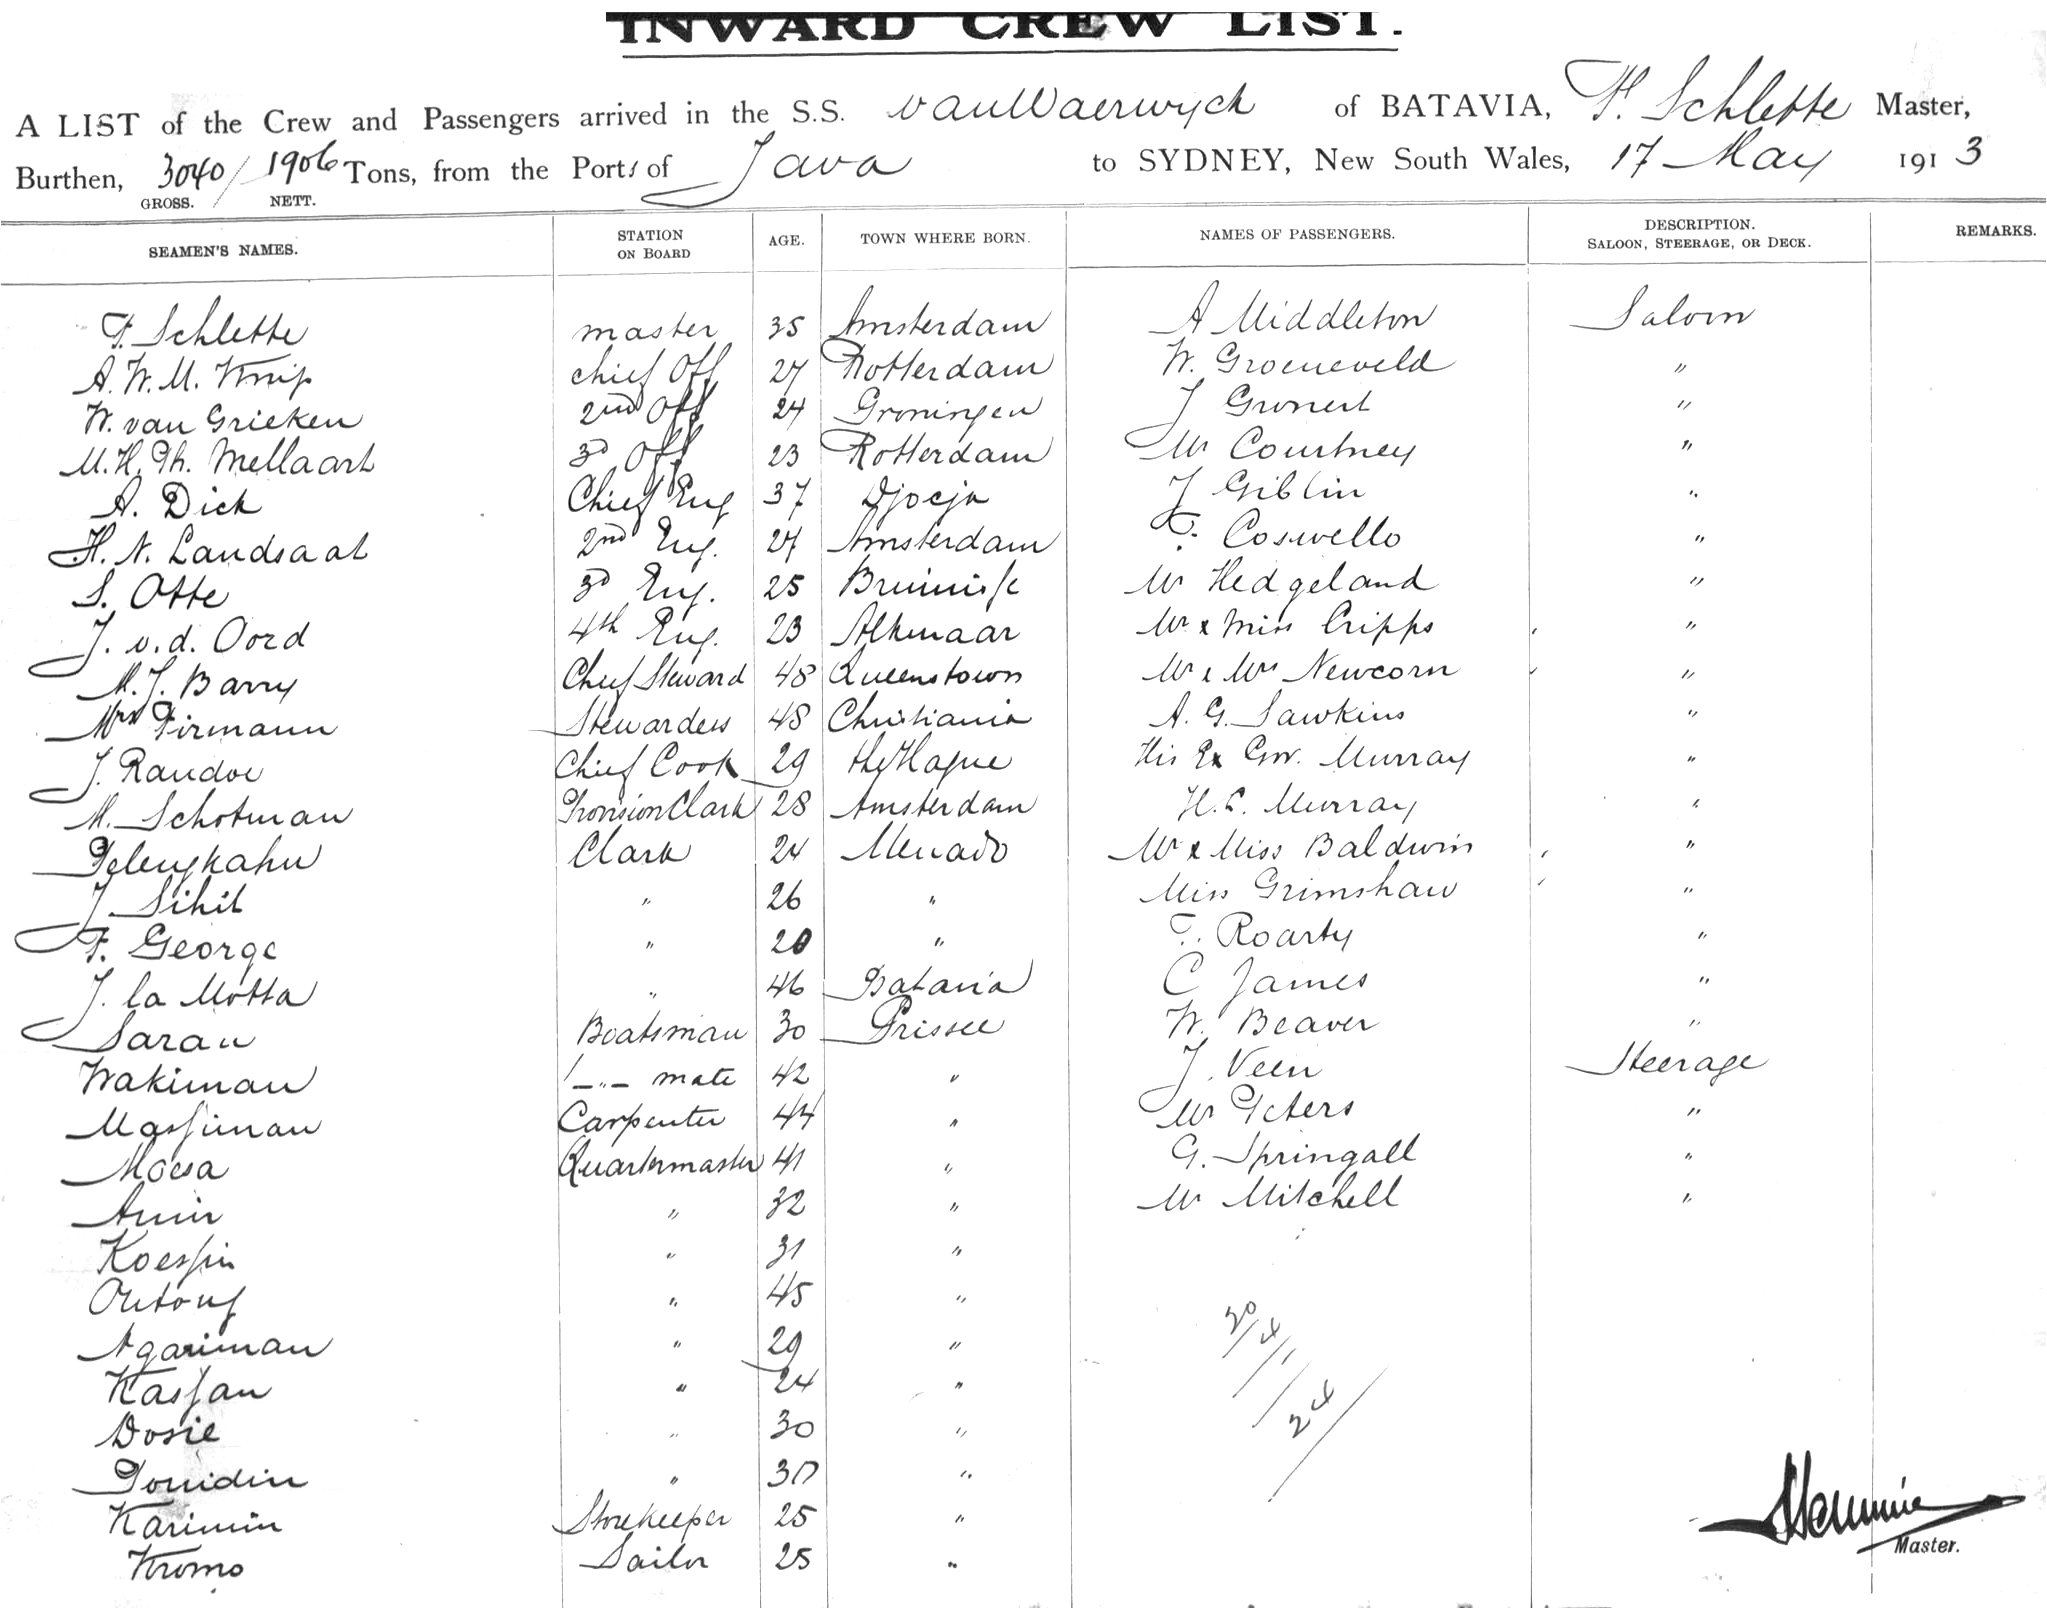 INWARD CREW LIST.
A LIST of the Crew and Passengers arrived in the S.S. van Waerwyck of BATAVIA, F. Schlette Master,
Burthen, 3040 / 1906 Tons, from the Ports of Java to SYDNEY, New South Wales, 17 May 1913
GROSS. NETT.
SEAMEN'S NAMES. STATION ON BOARD AGE. TOWN WHERE BORN. NAMES OF PASSENGERS. DESCRIPTION. SALOON, STEERAGE, OR DECK. REMARKS.
F. Schlette master 35 Amsterdam A Middleton Saloon
A. W. M. Knip chief Off 27 Rotterdam W. Groeneveld "
W. van Grieken 2nd Off 24 Groningen J Gronert "
M. H. Ph. Mellaart 3d Off 23 Rotterdam Mr Courtney "
A. Dick Chief Eng 37 Djocja J Giblin "
H. N. Landsaat 2nd Eng. 27 Amsterdam F. Coswello "
S. Otte 3d Eng. 25 Bruinisse Mr Hedgeland "
J. v. d. Oord 4th Eng. 23 Alkmaar Mr & Miss Cripps "
M. J. Barry Chief Steward 48 Queenstown Mr & Mrs Newcorn "
Mrs Firmann Stewardess 48 Christiania A. G. Sawkins "
J. Randoe Chief Cook 29 the Hague His Ex Gov. Murray "
M. Schotman Provision Clark 28 Amsterdam H. L. Murray "
Pelengkahu Clark 24 Menado Mr & Miss Baldwin "
J Sihit " 26 " Miss Grimshaw "
F. George " 20 " T. Roarty "
J. la Motta " 46 Batavia C James "
Saran Boatsman 30 Grissee W. Beaver "
Wakiman 1 -"- mate 42 " J. Veen Steerage
Massiman Carpenter 44 " Mr Peters "
Moesa Quartermaster 41 " G. Springall "
Amir " 32 " Mr Mitchell "
Koessin " 31 "
" 45 "
Ngariman " 29 "
Kassan " 24 "
Dosie " 30 "
" 30 "
Karimin Storekeeper 25 "
Kromo Sailor 25 "
20/4/
24/
Master.